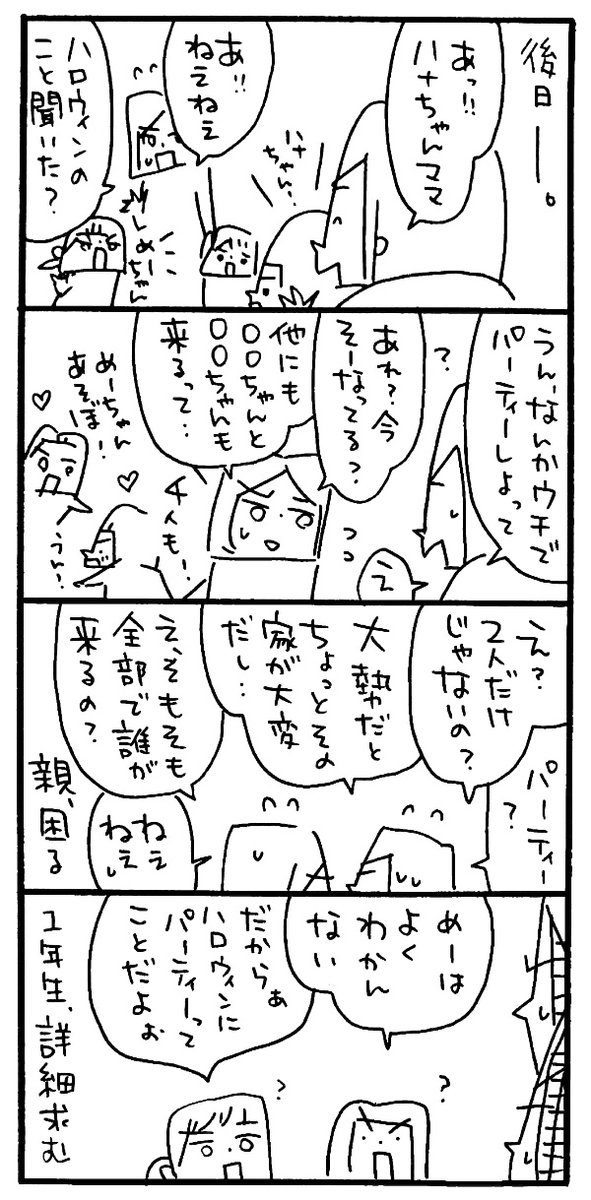 後日ー。
あっ!!
ハナちゃんママ
あ!!
ねえねえ
ハナ
ちゃん!
めーちゃん
ハロウィンの
こと聞いた?
うん、なんかウチで
パーティーしよって
?
え
あれ?今
そーなってる?
他にも
〇〇ちゃんと
〇〇ちゃんも
来るって…
4人も!
めーちゃん
あそぼ!
うん!
パーティー
?
え?
2人だけ
じゃないの?
大勢だと
ちょっとその
家が大変
だし…
え、そもそも
全部で誰が
来るの?
ねえ
ねえ
親、困る
めーは
よく
わかん
ない
だからぁ
ハロウィンに
パーティーって
ことだよぉ
?
?
1年生、詳細求む